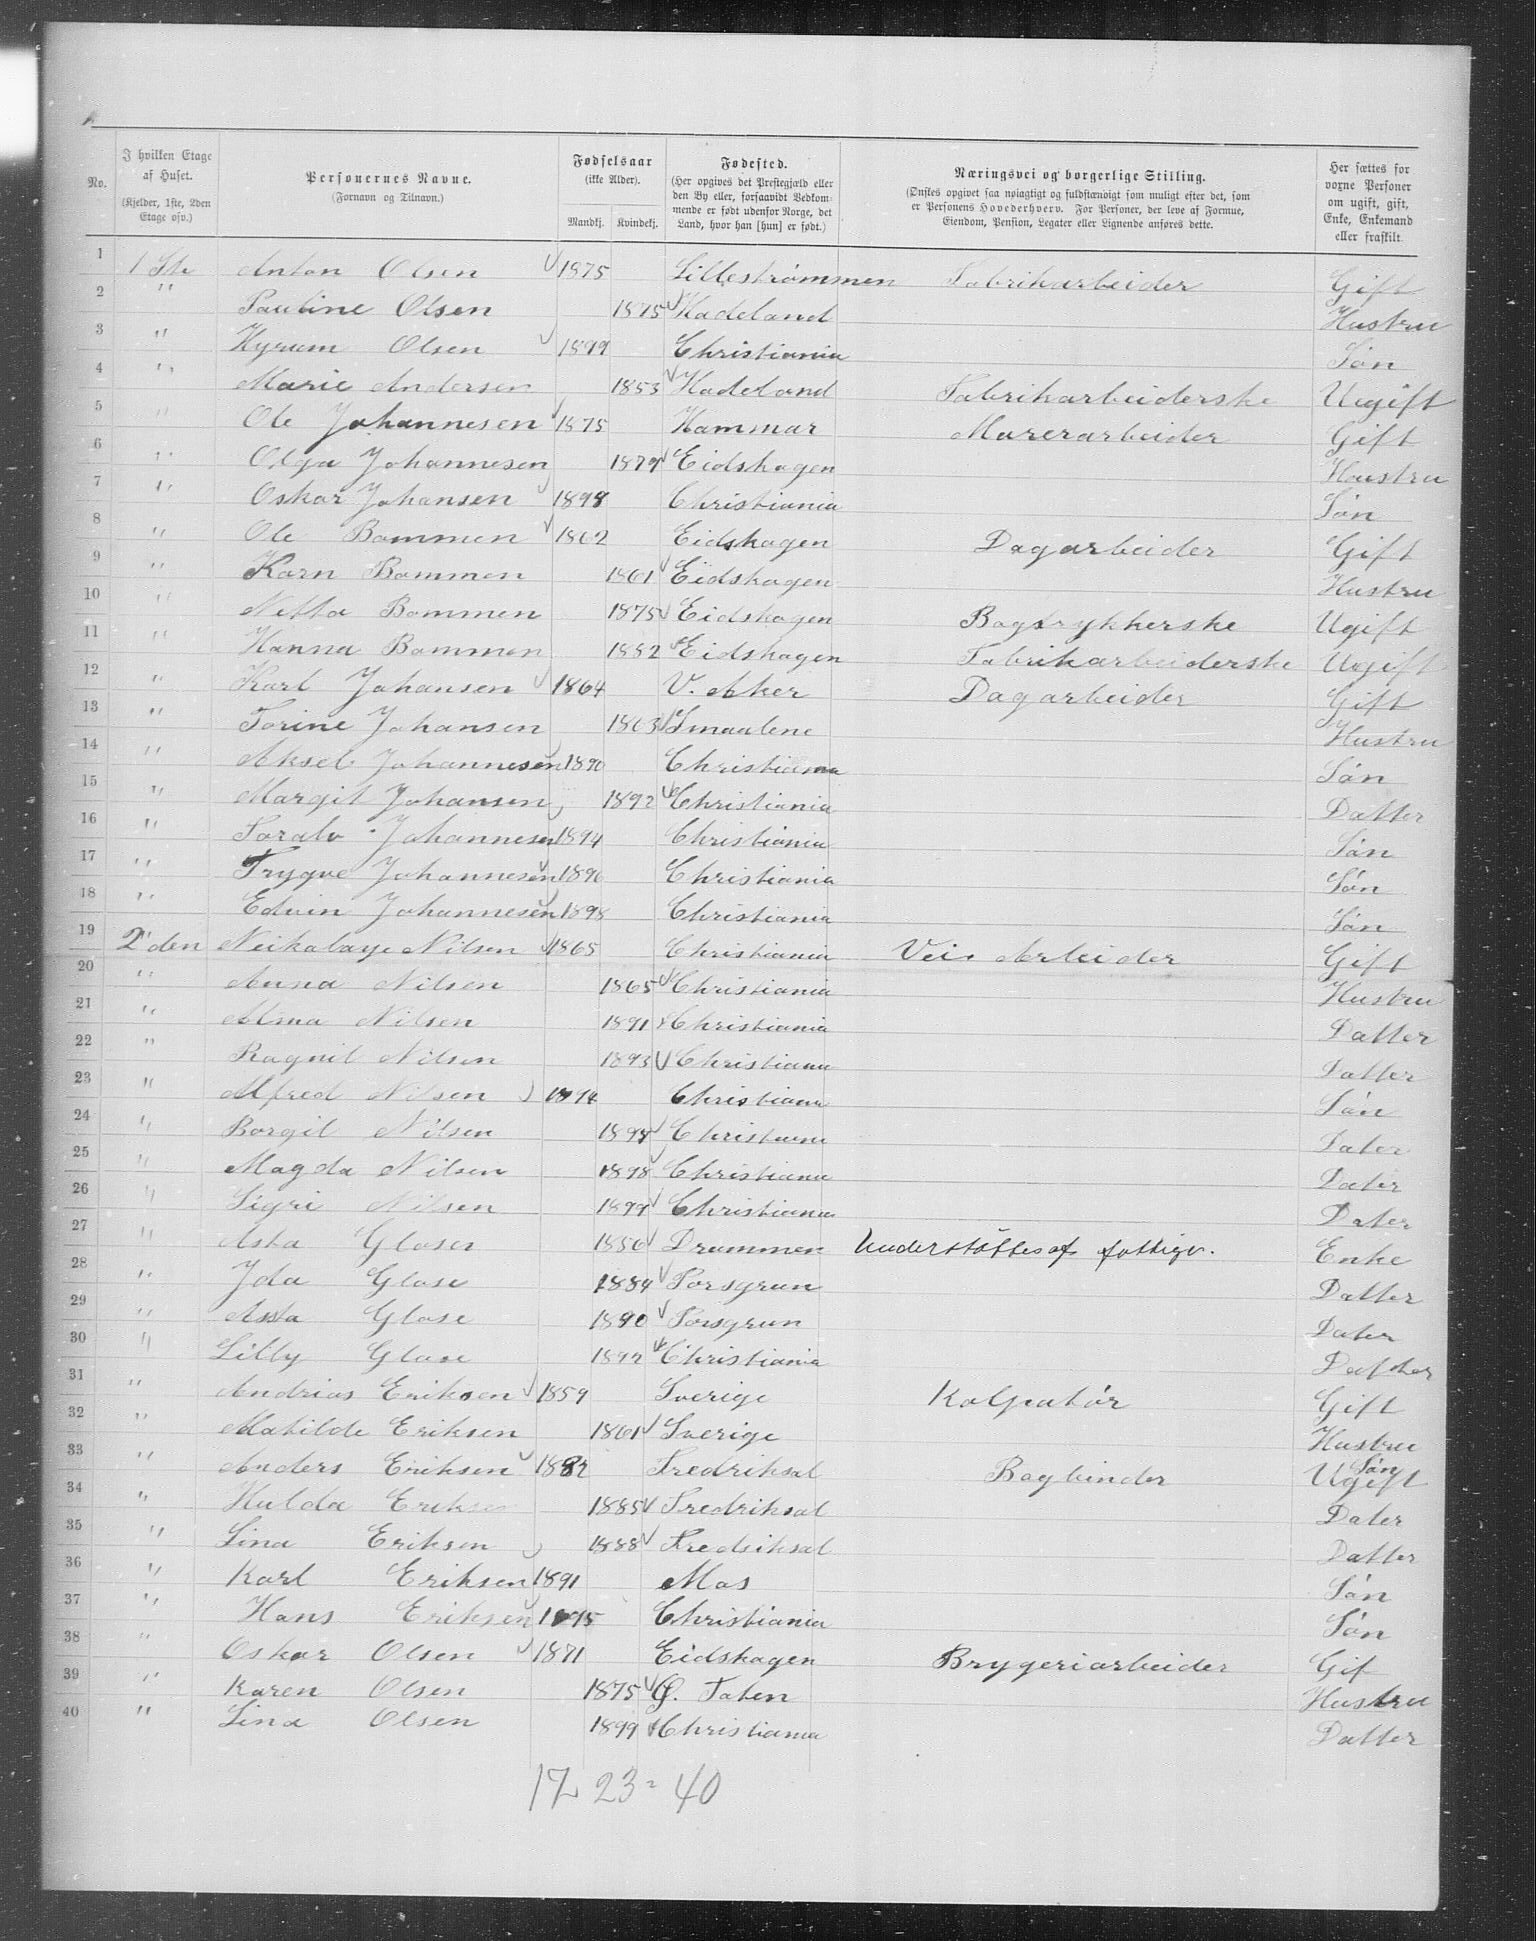 No. | I hvilken Etage af Huset. (Kjelder, 1ste, 2den Etage osv.) | Personernes Navne. (Fornavn og Tilnavn.) | Fødselsaar (ikke Alder). Mandkj. Kvindekj. | Fødested. (Her opgives det Prestegjæld eller den By eller, forsaavidt Vedkommende er født udenfor Norge, det Land, hvor han [hun] er født.) | Næringsvei og borgerlige Stilling. (Ønskes opgivet saa nøiagtigt og fuldstændigt som muligt efter det, som er Personens Hovederhverv. For Personer, der leve af Formue, Eiendom, Pension, Legater eller Lignende anføres dette.) | Her sættes for voxne Personer om ugift, gift, Enke, Enkemand eller fraskilt.
1 1 Ste Anton Olsen 1875 Lillestrømmen Fabrikarbeider Gift
2 " Pauline Olsen 1875 Hadeland Hustru
3 " Hyrum Olsen 1899 Christiania Søn
4 " Marie Andersen 1853 Hadeland Fabrikarbeiderske Uugift
5 " Ole Johannesen 1875 Hammar Murerarbeider Gift
6 " Olga Johannesen 1879 Eidskogen Haustru
7 " Oskar Johansen 1898 Christiania Søn
8 " Ole Bommen 1862 Eidskogen Dagarbeider Gift
9 " Karn Bommen 1861 Eidskogen Hustru
10 " Netta Bommen 1875 Eidskogen Bogtrykkerske Ugift
11 " Hanna Bommen 1882 Eidskogen Fabrikarbeiderske Uugift
12 " Karl Johansen 1864 V. Aker Dagarbeider Gift
13 " Torine Johansen 1863 Smaalene Hustru
14 " Aksel Johannesen 1890 Christiania Søn
15 " Margit Johansen 1892 Christiania Datter
16 " Toralv Johannesen 1894 Christiania Søn
17 " Trygve Johannesen 1896 Christiania Søn
18 " Edvin Johannesen 1898 Christiania Søn
19 2'den Neikolaye Nilsen 1865 Christiania Vei Arbeider Gift
20 " Anna Nilsen 1865 Christiania Hustru
21 " Alma Nilsen 1891 Christiania Datter
22 " Ragnil Nilsen 1893 Christiania Datter
23 " Alfred Nilsen 1894 Christiania Søn
24 " Borgil Nilsen Christiania Dater
25 " Magda Nilsen 1898 Christiania Dater
26 " Sigri Nilsen 1899 Christiania Dater
27 " Asta Glaser 1856 Drammen Understøttes af fattigv. Enke
28 " Ida Glase 1884 Porsgrun Datter
29 " Asta Glase 1890 Porsgrun Dater
30 " Lilly Glase 1892 Christiania Datter
31 " Andrias Eriksen 1859 Sverige Kolportør Gift
32 " Matilde Eriksen 1861 Sverige Hustru
33 " Anders Eriksen 1882 Fredriksal Bogbinder Søn Ugift
34 " Hulda Eriksen 1885 Fredriksal Dater
35 " Lina Eriksen 1888 Fredriksal Datter
36 " Karl Eriksen 1891 Mos Søn
37 " Hans Eriksen 1895 Christiania Søn
38 " Oskar Olsen 1871 Eidskogen Brygeriarbeider Gif
39 " Karen Olsen 1875 G. Toten Hustru
40 " Lina Olsen 1899 Christiania Datter
17 23 = 40